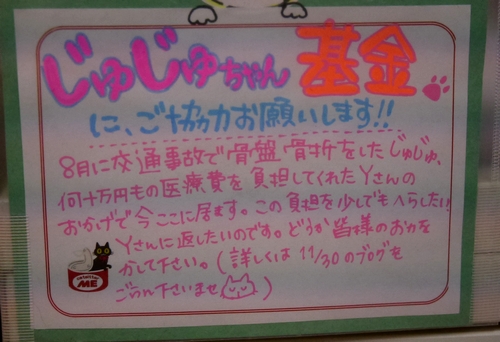 じゅじゅちゃん基金
に、ご協力お願いします!!
8月に交通事故で骨盤骨折をしたじゅじゅ、
何十万円もの医療費を負担してくれたYさんの
おかげで今ここに居ます。この負担を少しでもへらしたい!
Yさんに返したいのです。どうか皆様のお力を
かして下さい。(詳しくは11/30のブログを
ごらん下さいませ)
ME